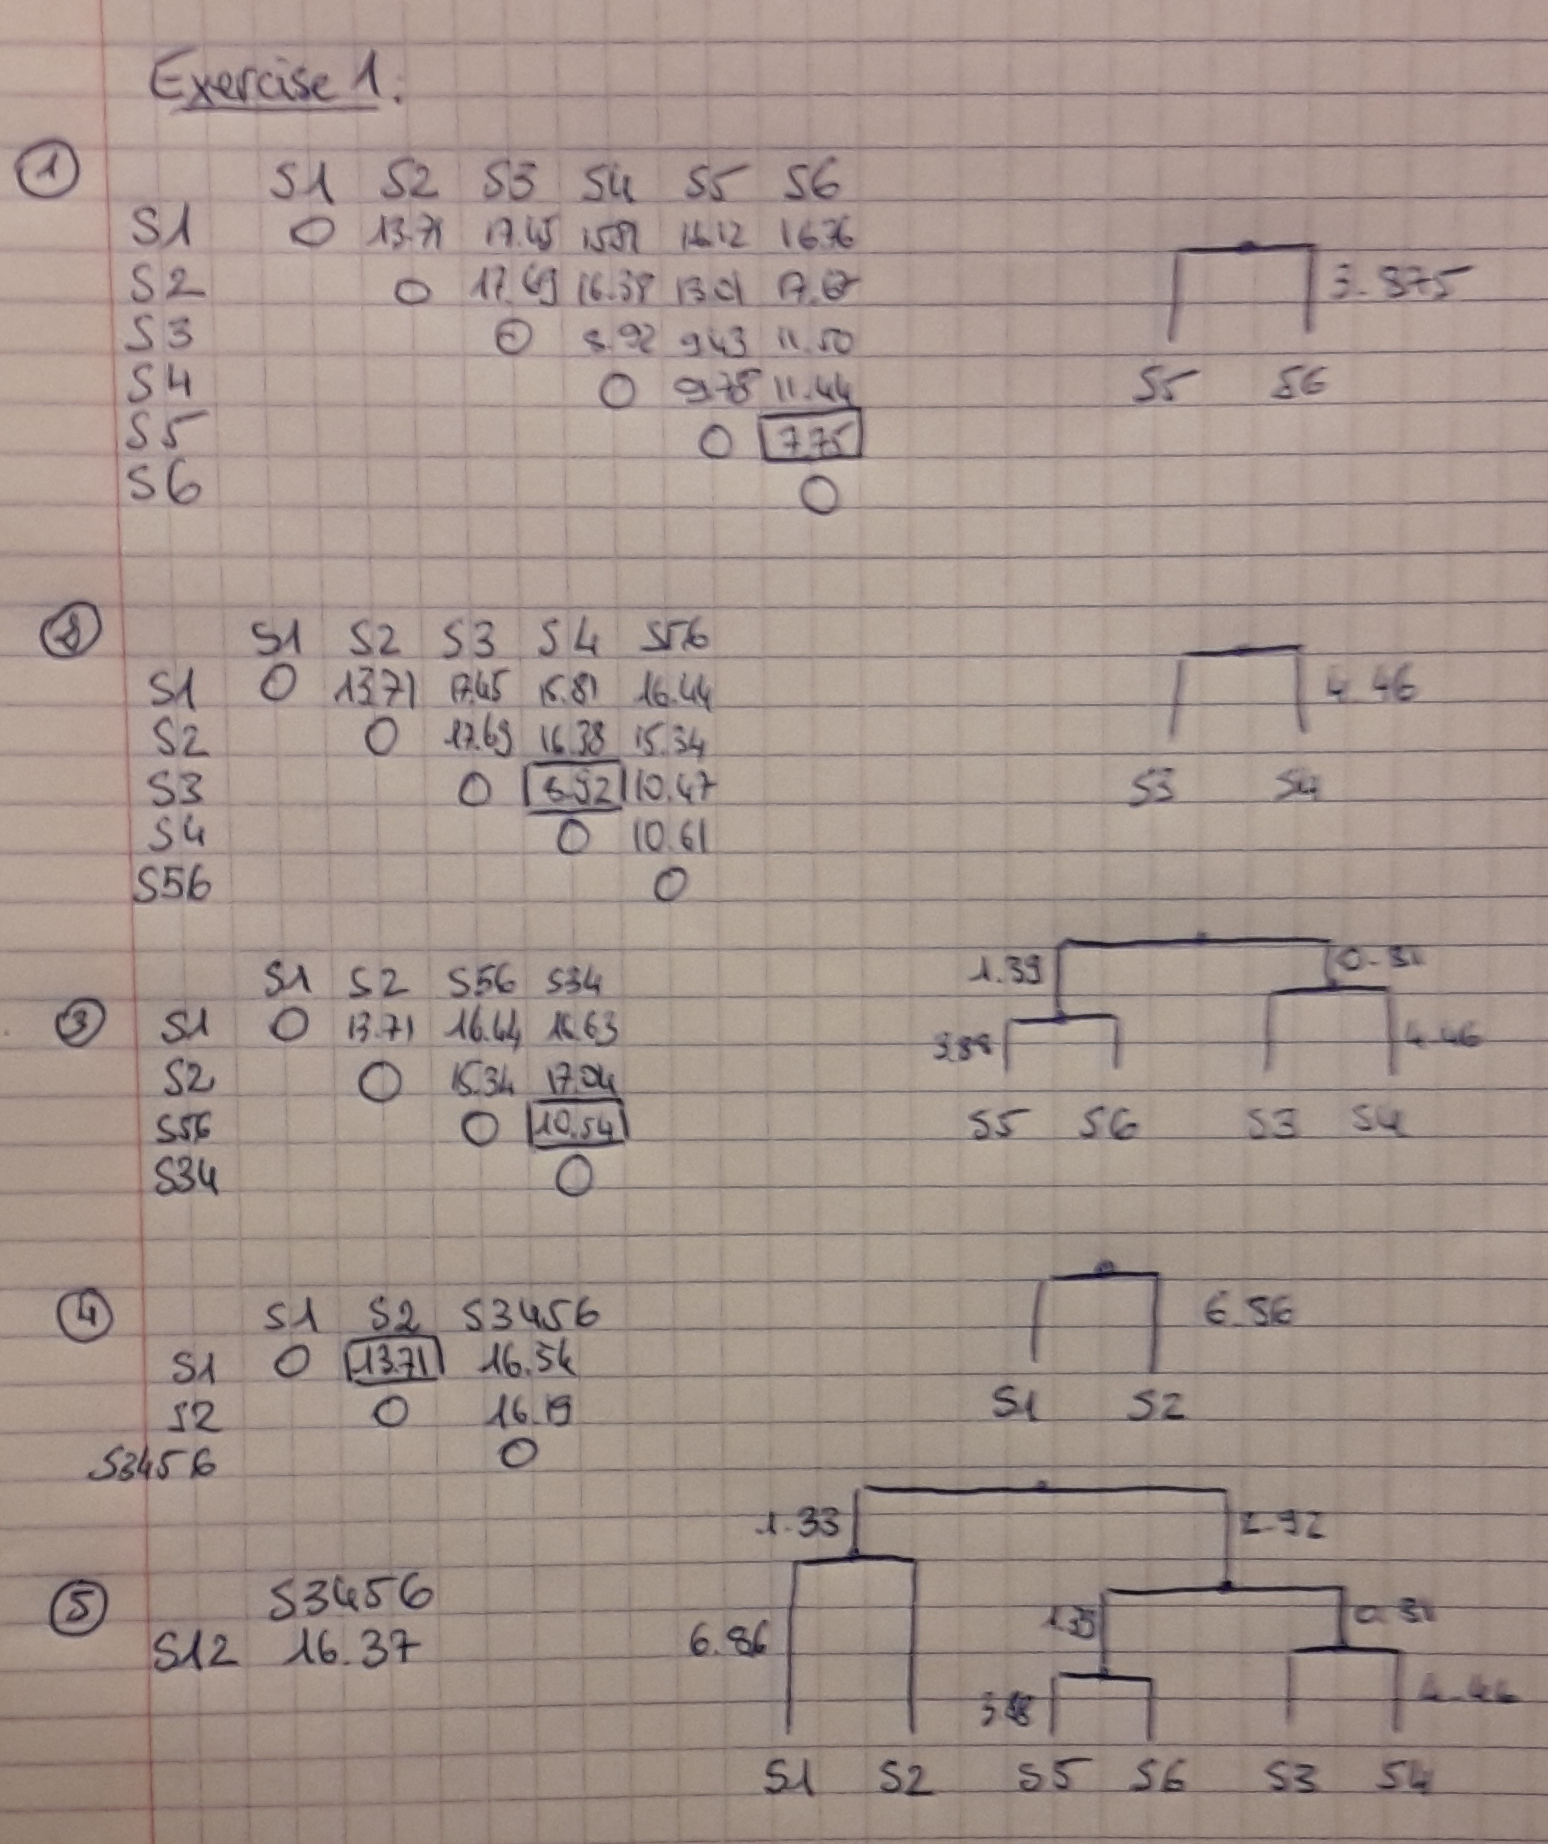 Exercise 1:
①
S1 S2 S3 S4 S5 S6
S1 0 13.71 17.45 15.81 16.12 16.76
S2 0 17.69 16.38 13.01 17.67
S3 0 8.92 9.43 11.50
S4 0 9.78 11.44
S5 0 7.75
S6 0
3.875
S5 S6
②
S1 S2 S3 S4 S56
S1 0 13.71 17.45 15.81 16.44
S2 0 17.69 16.38 15.34
S3 0 8.92 10.47
S4 0 10.61
S56 0
4.46
S3 S4
③
S1 S2 S56 S34
S1 0 13.71 16.44 16.63
S2 0 15.34 17.04
S56 0 10.54
S34 0
1.39 0.81
3.88 4.46
S5 S6 S3 S4
④
S1 S2 S3456
S1 0 13.71 16.54
S2 0 16.19
S3456 0
S1 S2
⑤
S3456
S12 16.37
1.33 2.92
6.86 1.39 0.81
3.88 4.46
S1 S2 S5 S6 S3 S4